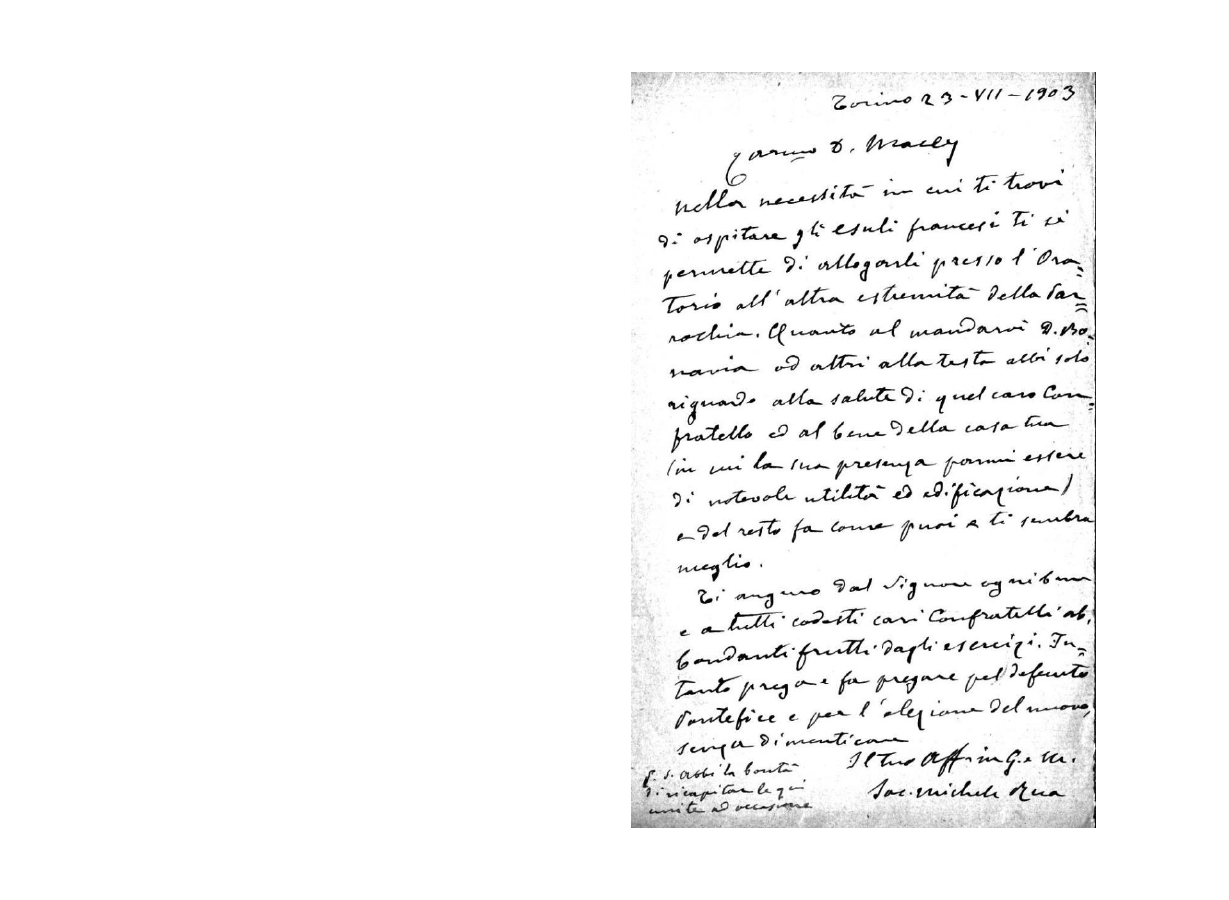 Torino 23-VII-1903
Carmo D. Macey
Nella necessità in cui ti trovi
di ospitare gli esuli francesi ti si
permette di allogarli presso l'Ora=
torio all'altra estremità della Par=
rochia. Quanto al mandarvi D. Bo=
navia od altri alla testa abbi solo
riguardo alla salute di quel caro Con=
fratello ed al bene della casa tua
(in cui la sua presenza parmi essere
di notevole utilità ed edificazione)
e del resto fa come puoi e ti sembra
meglio.
Ti auguro dal Signore ogni bene
e a tutti codesti cari Confratelli ab=
bondanti frutti dagli esercizi. In=
tanto prega e fa pregare pel defunto
Pontefice e per l'elezione del nuovo,
senza dimenticare
Il tuo Aff.mo in G. e M.
Sac. Michele Rua
P. S. Abbi la bontà
di ricapitar le qui
unite ad occasione